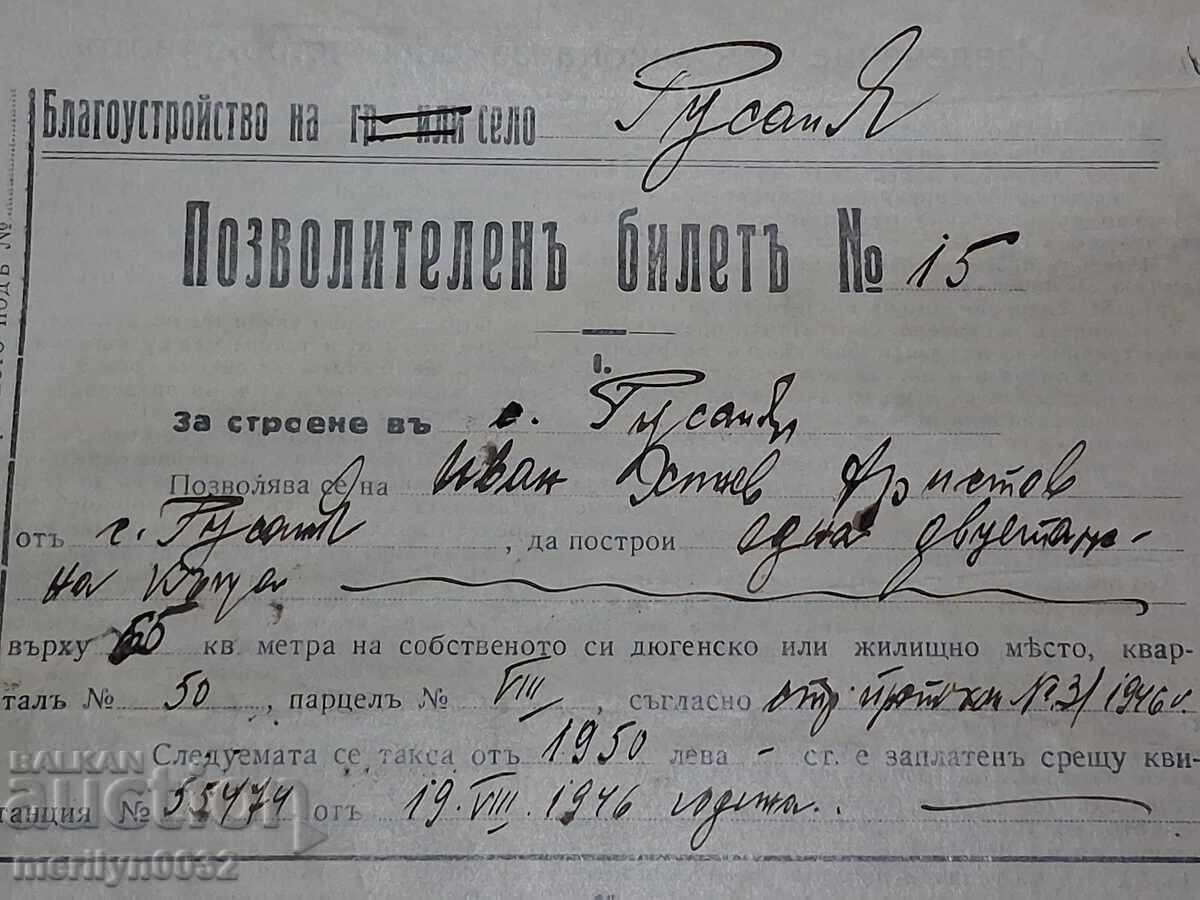 Благоустройство на гр или село Русаля
Позволителенъ билетъ № 15
За строене въ с. Русаля
Позволява се на Иван Христов
отъ с. Русаля, да построи една двуетаж-
на къща
върху кв метра на собственото си дюгенско или жилищно мѣсто, квар-
талъ № 50, парцелъ № VIII, съгласно № 3/1946 г.
Следуемата се такса отъ 1950 лева - ст. е заплатенъ срещу кви-
танция № 55474 отъ 19.VIII.1946 година.
подъ №
BALKAN
auction
merilyn0032